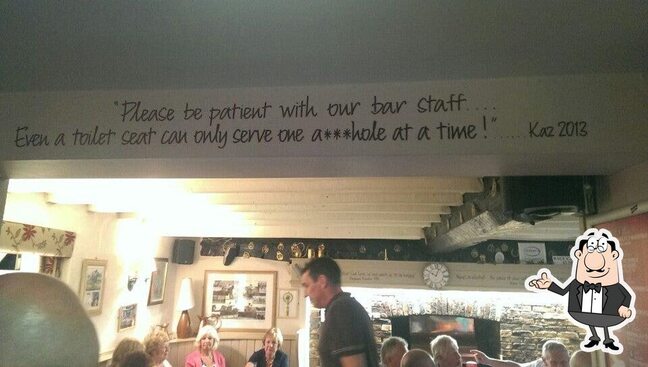 "Please be patient with our bar staff....
Even a toilet seat can only serve one a***hole at a time!"..... Kaz 2013